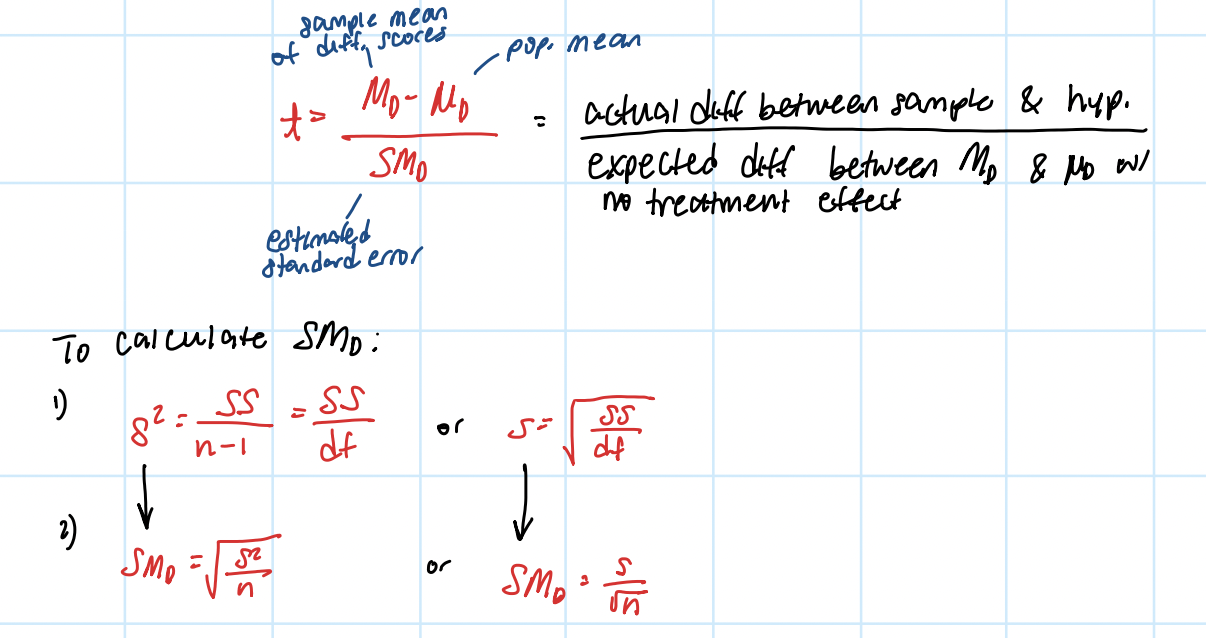 sample mean
of diff. scores
pop. mean
t = (M_D - μ_D) / SM_D = actual diff between sample & hyp. / expected diff between M_D & μ_D w/
no treatment effect
estimated
standard error
To calculate SM_D:
1) s² = SS / (n-1) = SS / df or s = √(SS / df)
2) SM_D = √(s² / n) or SM_D = s / √n